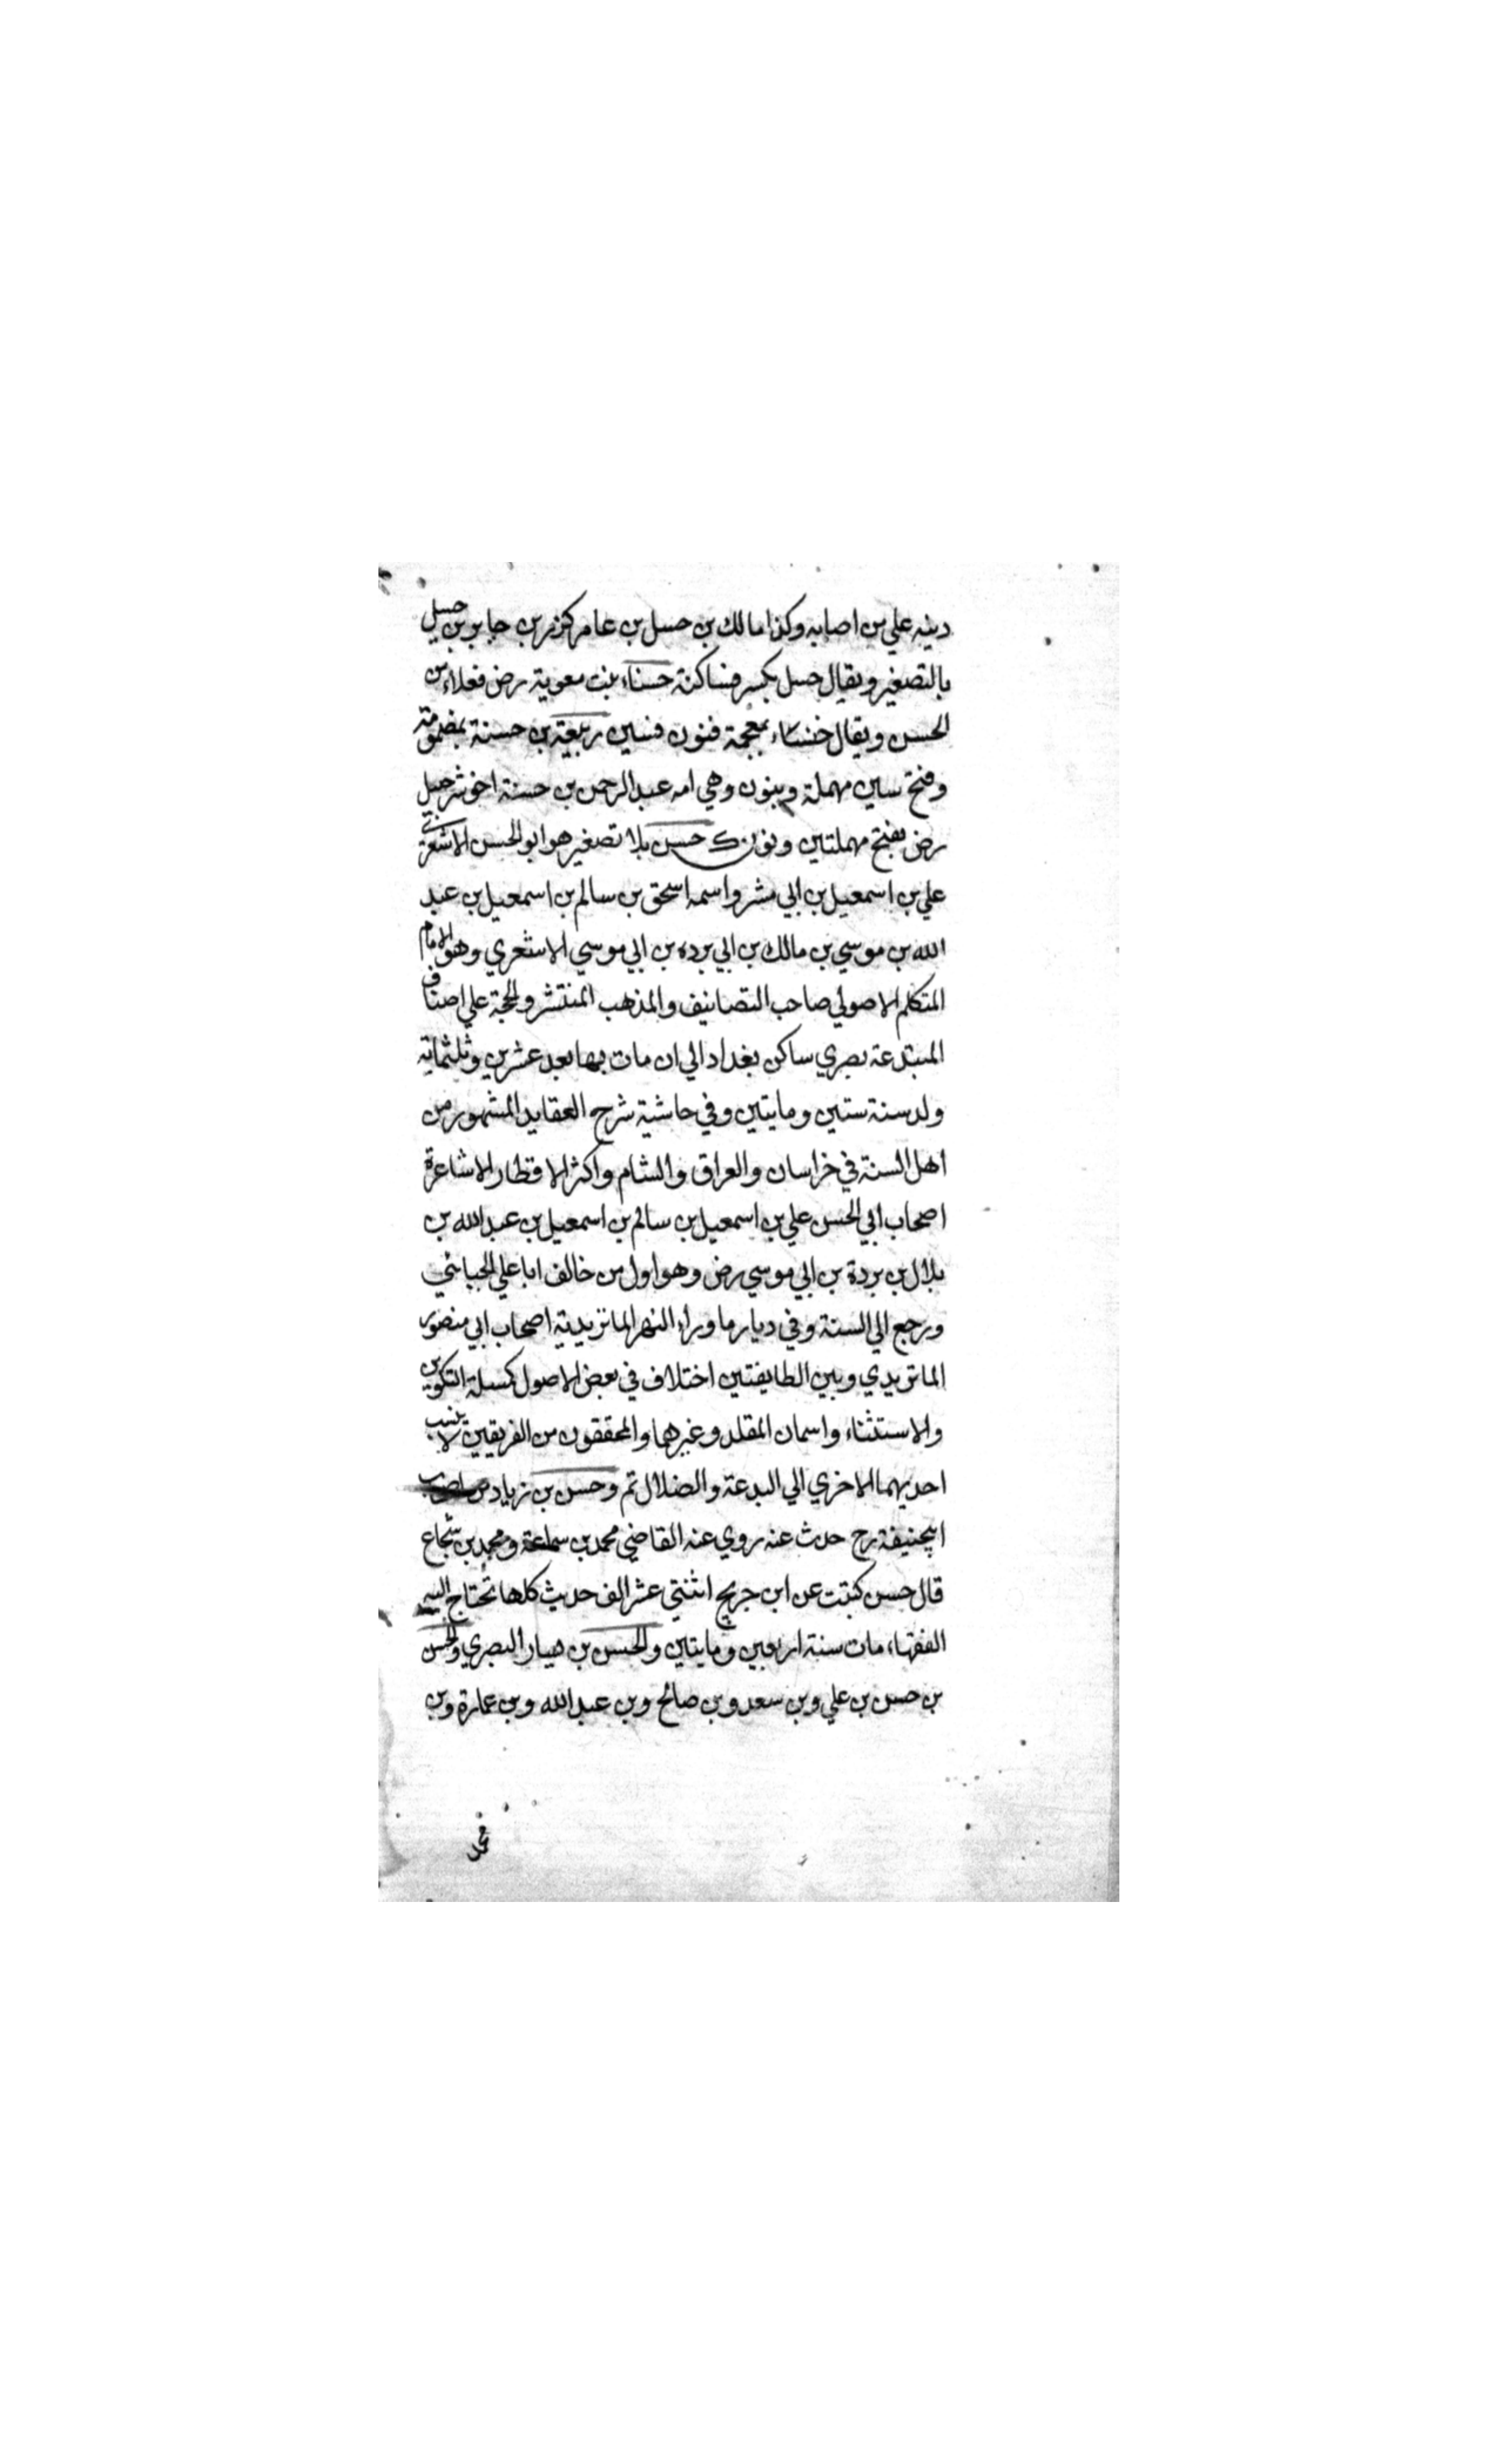 دينه علي من اصابه وكذا مالك بن حسل بن عامر كزبر بن جابر بن حسيل
بالتصغير ويقال حسل بكسر فساكنة حسناء بنت معوية رض فعلاء من
الحسن ويقال خنساء بمعجمة فنون فسين ربيعة بن حسنة بمضمومة
وفتح سين مهملة وبنون وهي امه عبد الرحمن بن حسنة اخو شرحبيل
رض بفتح مهملتين ونون ك حسن بلا تصغير هو ابو الحسن الاشعري
علي بن اسمعيل بن ابي مشر واسمه اسحق بن سالم بن اسمعيل بن عبد
الله بن موسي بن مالك بن ابي برده بن ابي موسي الاشعري وهو الامام
المتكلم الاصولي صاحب التصانيف والمذهب المنتشر والحجة علي اصناف
المبتدعة بصري ساكن بغداد الي ان مات بها بعد عشرين وثلثماية
ولد سنة ستين ومايتين وفي حاشية شرح العقايد المشهور من
اهل السنة في خراسان والعراق والشام واكثر الاقطار الاشاعرة
اصحاب ابي الحسن علي بن اسمعيل بن سالم بن اسمعيل بن عبد الله بن
بلال بن بردة بن ابي موسي رض وهو اول من خالف ابا علي الجبائي
ورجع الي السنة وفي ديار ما وراء النهر الماتريدية اصحاب ابي منصور
الماتريدي وبين الطايفتين اختلاف في بعض الاصول كمسلة التكوين
والاستثناء واسمان المقلد وغيرهما والمحققون من الفريقين لا ينسب
احديهما الاخري الي البدعة والضلال تم وحسن بن زياد من اصحاب
ابيحنيفة رح حدث عنه روي عنه القاضي محمد بن سماعة ومحمد بن شجاع
قال حسن كتبت عن ابن جريج اثنتي عشر الف حديث كلها تحتاج اليه
الفقهاء مات سنة اربعين ومايتين والحسن بن هيار البصري والحسن
بن حسن بن علي وبن سعد وبن صالح وبن عبد الله وبن عمارة وبن
محمد